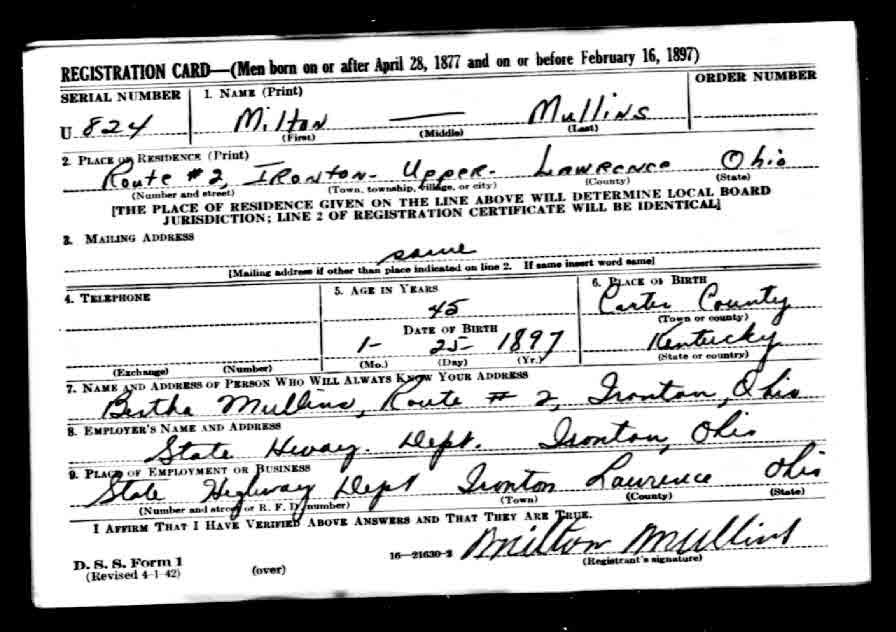 REGISTRATION CARD—(Men born on or after April 28, 1877 and on or before February 16, 1897)
SERIAL NUMBER 1. NAME (Print) ORDER NUMBER
U 824 Milton — Mullins
(First) (Middle) (Last)
2. PLACE OF RESIDENCE (Print)
Route #2, IRONTON- Upper. LAWRENCE Ohio
(Number and street) (Town, township, village, or city) (County) (State)
[THE PLACE OF RESIDENCE GIVEN ON THE LINE ABOVE WILL DETERMINE LOCAL BOARD
JURISDICTION; LINE 2 OF REGISTRATION CERTIFICATE WILL BE IDENTICAL]
3. MAILING ADDRESS
same
[Mailing address if other than place indicated on line 2. If same insert word same]
4. TELEPHONE 5. AGE IN YEARS 6. PLACE OF BIRTH
45 Carter County
(Town or county)
DATE OF BIRTH
1- 25- 1897 Kentucky
(Exchange) (Number) (Mo.) (Day) (Yr.) (State or country)
7. NAME AND ADDRESS OF PERSON WHO WILL ALWAYS KNOW YOUR ADDRESS
Bertha Mullins, Route # 2, Ironton, Ohio
8. EMPLOYER'S NAME AND ADDRESS
State Hiway. Dept. Ironton, Ohio
9. PLACE OF EMPLOYMENT OR BUSINESS
State Highway Dept Ironton Lawrence Ohio
(Number and street or R. F. D. number) (Town) (County) (State)
I AFFIRM THAT I HAVE VERIFIED ABOVE ANSWERS AND THAT THEY ARE TRUE.
D. S. S. Form 1
(Revised 4-1-42) (over) 16—21630-2 Milton Mullins
(Registrant's signature)